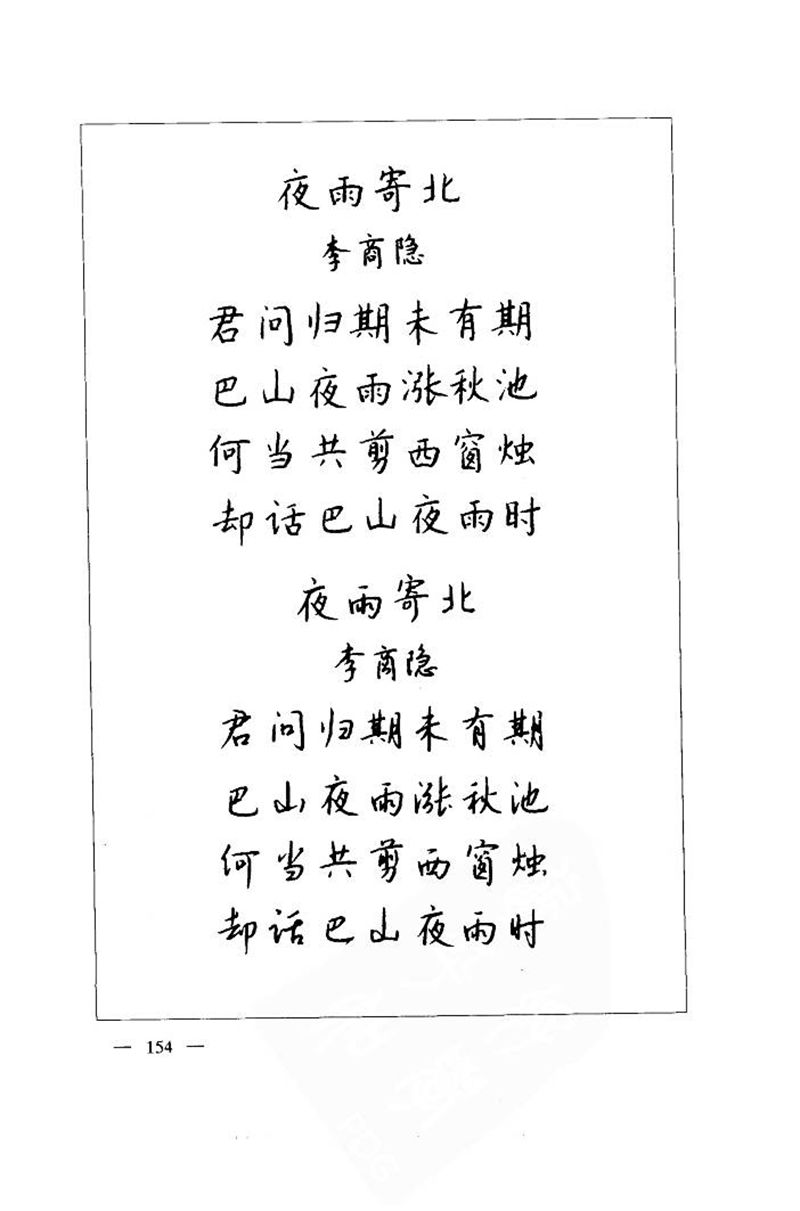 夜雨寄北
李商隐
君问归期未有期
巴山夜雨涨秋池
何当共剪西窗烛
却话巴山夜雨时
夜雨寄北
李商隐
君问归期未有期
巴山夜雨涨秋池
何当共剪西窗烛
却话巴山夜雨时
— 154 —
PDG